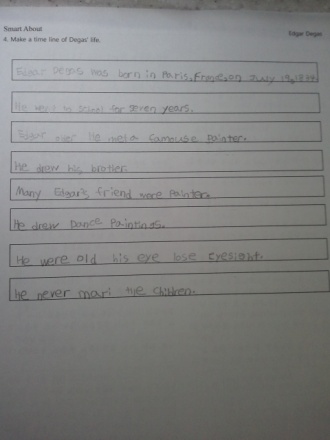 Smart About
Edgar Degas
4. Make a time line of Degas' life.
Edgar Degas was born in Paris, France, on July 19, 1834
He went to school for seven years.
Edgar he met a famouse Painter.
He drew his brother.
Many Edgar's friend were Painter.
He drew Dance Paintings.
He were old his eye lose Eyesight.
He never mari the children.